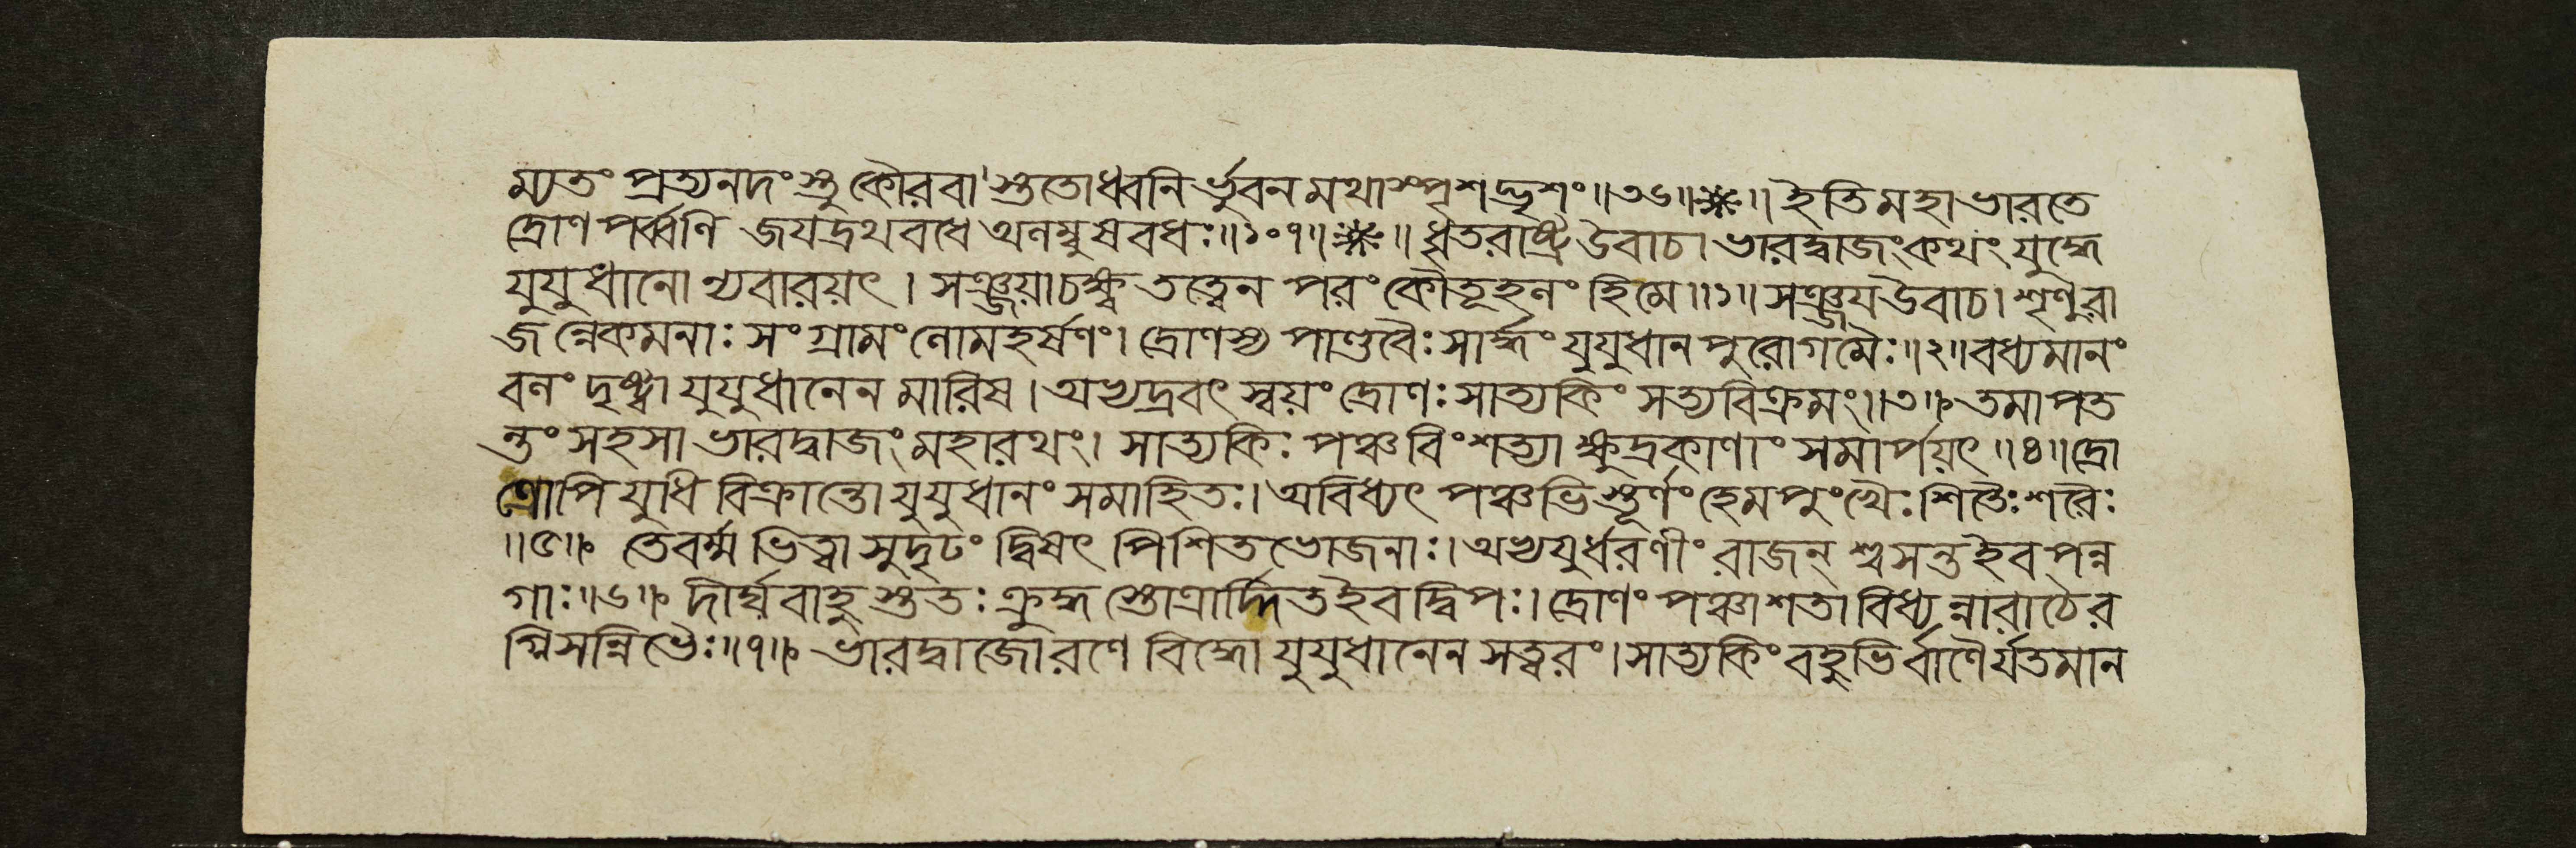 ম্যতং প্রত্যনদংস্তু কৌরবাস্ততোধ্বনির্ভুবনমথাস্পৃশদ্ভৃশং॥৩৬॥❋॥ ইতিমহাভারতে
দ্রোণপর্ব্বণি জয়দ্রথবধে অলম্বুষবধঃ॥১০৭॥❋॥ ধৃতরাষ্ট্রউবাচ। ভারদ্বাজংকথং যুদ্ধে
যুযুধানো ঽভ্যবারয়ৎ। সঞ্জয়াচক্ষ্ব তত্ত্বেন পরং কৌতূহলং হিমে॥১॥ সঞ্জয়উবাচ। শৃণুরা
জন্নেকমনাঃ সংগ্রামং লোমহর্ষণং। দ্রোণস্য পাণ্ডবৈঃ সার্দ্ধং যুযুধানপুরোগমৈঃ॥২॥ বধ্যমানং
বলং দৃষ্ট্বা যুযুধানেন মারিষ। অভ্যদ্রবৎ স্বয়ং দ্রোণঃ সাত্যকিং সত্যবিক্রমং॥৩॥ তমাপত
ন্তং সহসা ভারদ্বাজং মহারথং। সাত্যকিঃ পঞ্চবিংশত্যা ক্ষুদ্রকাণাং সমার্পয়ৎ॥৪॥ দ্রো
ণোপি যুধি বিক্রান্তো যুযুধানং সমাহিতঃ। অবিধ্যৎ পঞ্চভিস্তূর্ণং হেমপুংখৈঃ শিতৈঃ শরৈঃ
॥৫॥ তেবর্ম্ম ভিত্বা সুদৃঢং দ্বিষৎ পিশিতভোজনাঃ। অভ্যযুর্ধরণীং রাজন্ শ্বসন্তইব পন্ন
গাঃ॥৬॥ দীর্ঘবাহুস্ততঃ ক্রুদ্ধস্তোত্রার্দ্দিতইবদ্বিপঃ। দ্রোণং পঞ্চাশতাবিধ্যন্নারাচৈর
গ্নিসন্নিভৈঃ॥৭॥ ভারদ্বাজোরণে বিদ্ধো যুযুধানেন সত্বরং। সাত্যকিং বহুভির্বাণৈর্যতমান